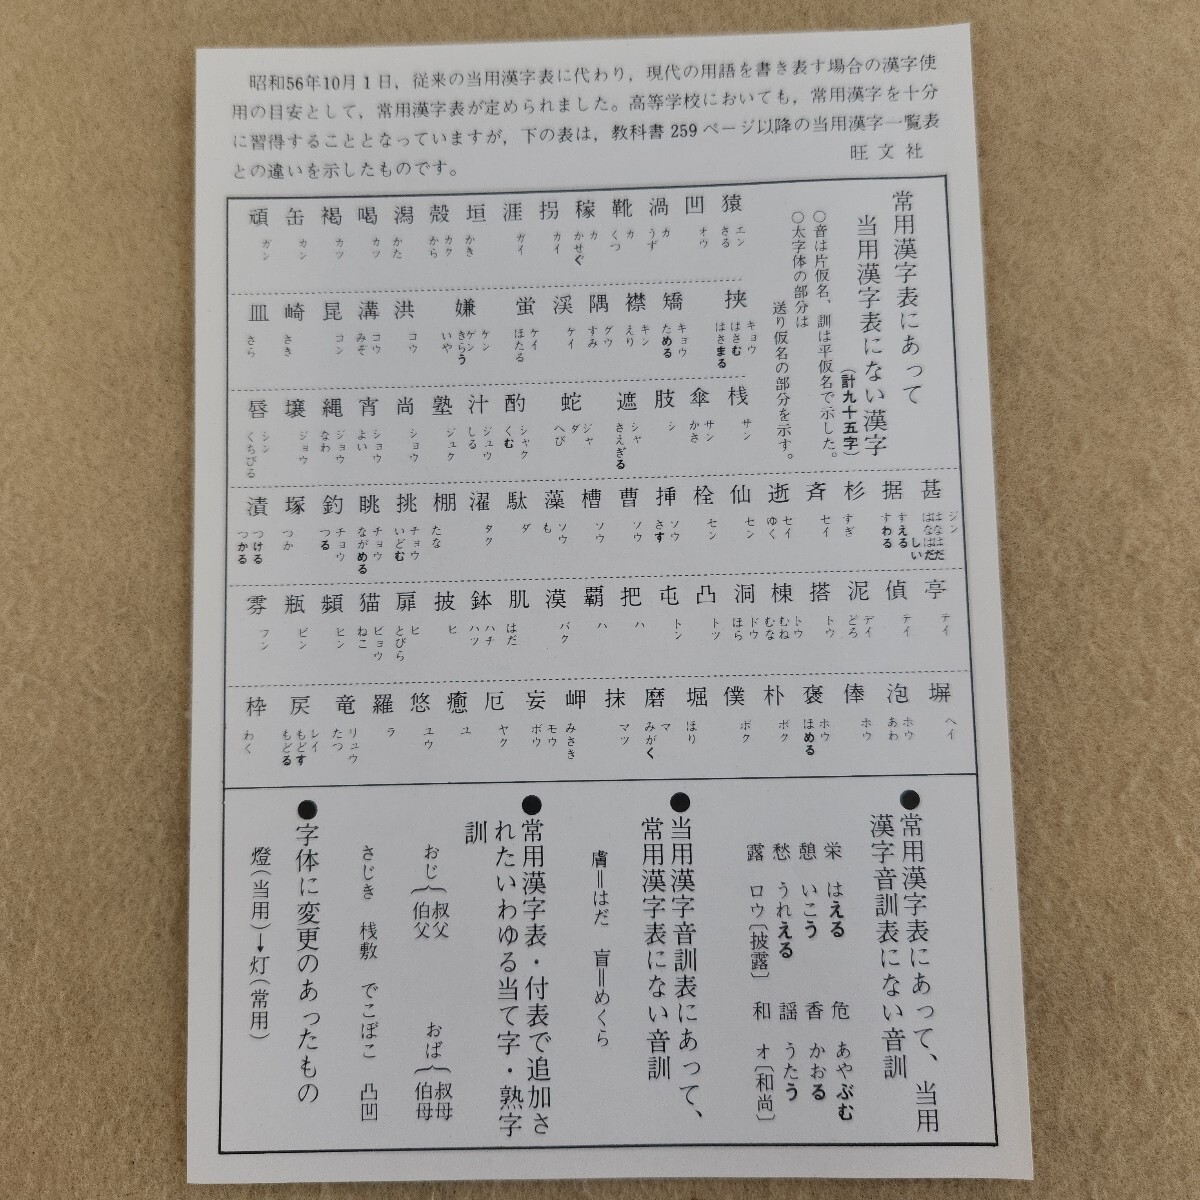 昭和56年10月1日，従来の当用漢字表に代わり，現代の用語を書き表す場合の漢字使
用の目安として，常用漢字表が定められました。高等学校においても，常用漢字を十分
に習得することとなっていますが，下の表は，教科書259ページ以降の当用漢字一覧表
との違いを示したものです。
旺文社
常用漢字表にあって
当用漢字表にない漢字
（計九十五字）
○音は片仮名、訓は平仮名で示した。
○太字体の部分は
送り仮名の部分を示す。
猿 エン さる
凹 オウ
渦 カ うず
靴 カ くつ
稼 カ かせぐ
拐 カイ
涯 ガイ
垣 かき
殻 カク から
潟 かた
喝 カツ
褐 カツ
缶 カン
頑 ガン
挟 キョウ はさむ はさまる
矯 キョウ ためる
襟 キン えり
隅 グウ すみ
渓 ケイ
蛍 ケイ ほたる
嫌 ケン ゲン きらう いや
洪 コウ
溝 コウ みぞ
昆 コン
崎 さき
皿 さら
桟 サン
傘 サン かさ
肢 シ
遮 シャ さえぎる
蛇 ジャ ダ へび
酌 シャク くむ
汁 ジュウ しる
塾 ジュク
尚 ショウ
宵 ショウ よい
縄 ジョウ なわ
壌 ジョウ
唇 シン くちびる
甚 ジン はなはだ はなはだしい
据 すえる すわる
杉 すぎ
斉 セイ
逝 セイ ゆく
仙 セン
栓 セン
挿 ソウ さす
曹 ソウ
槽 ソウ
藻 ソウ も
駄 ダ
濯 タク
棚 たな
挑 チョウ いどむ
眺 チョウ ながめる
釣 チョウ つる
塚 つか
漬 つける つかる
亭 テイ
偵 テイ
泥 デイ どろ
搭 トウ
棟 トウ むね むな
洞 ドウ ほら
凸 トツ
屯 トン
把 ハ
覇 ハ
漠 バク
肌 はだ
鉢 ハチ ハツ
披 ヒ
扉 ヒ とびら
猫 ビョウ ねこ
頻 ヒン
瓶 ビン
雰 フン
塀 ヘイ
泡 ホウ あわ
俸 ホウ
褒 ホウ ほめる
朴 ボク
僕 ボク
堀 ほり
磨 マ みがく
抹 マツ
岬 みさき
妄 モウ ボウ
厄 ヤク
癒 ユ
悠 ユウ
羅 ラ
竜 リュウ たつ
戻 レイ もどす もどる
枠 わく
●常用漢字表にあって、当用
漢字音訓表にない音訓
栄 はえる 危 あやぶむ
憩 いこう 香 かおる
愁 うれえる 謡 うたう
露 ロウ〔披露〕 和 オ〔和尚〕
●当用漢字音訓表にあって、
常用漢字表にない音訓
膚＝はだ 盲＝めくら
●常用漢字表・付表で追加さ
れたいわゆる当て字・熟字
訓
おじ｛叔父 伯父 おば｛叔母 伯母
さじき 桟敷 でこぼこ 凸凹
●字体に変更のあったもの
燈（当用）→灯（常用）